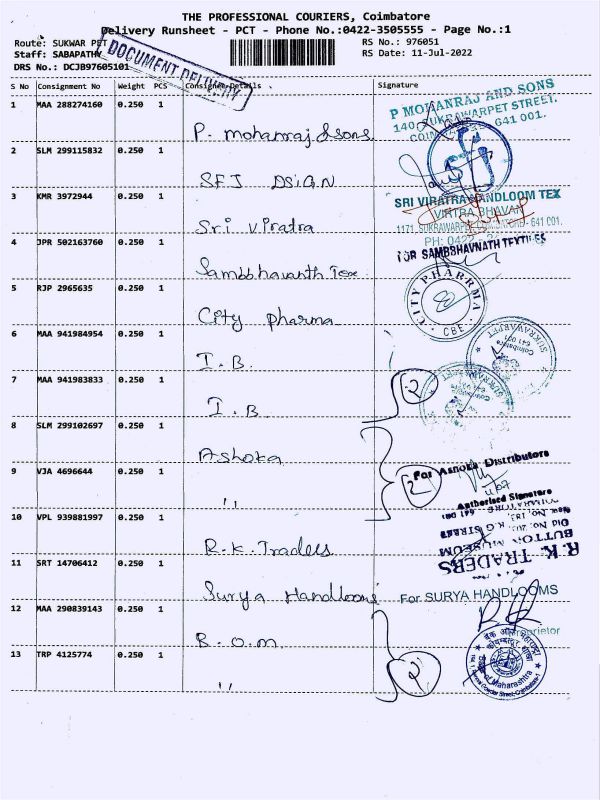 THE PROFESSIONAL COURIERS, Coimbatore
Delivery Runsheet - PCT - Phone No.:0422-3505555 - Page No.:1
Route: SUKWAR PET
RS No.: 976051
Staff: SABAPATHY
RS Date: 11-Jul-2022
DRS No.: DCJB97605101
DOCUMENT DELIVERY
S No Consignment No Weight PCS Consignee Details Signature
1 MAA 288274160 0.250 1 P. Mohanraj & Sons
P MOHANRAJ AND SONS
140, SUKRAWARPET STREET,
COIMBATORE 641 001.
2 SLM 299115832 0.250 1 SFJ DSIGN
3 KMR 3972944 0.250 1 Sri Viratra
SRI VIRATRA HANDLOOM TEX
VIRTRA BHAVAN
1171, SUKRAWARPET 641 001.
PH: 0422
4 JPR 502163760 0.250 1 Sambbhavanth Tex
FOR SAMBBHAVNATH TEXTILES
5 RJP 2965635 0.250 1 City pharma
CITY PHARRMA
CBE
6 MAA 941984954 0.250 1 I.B.
SUKRAWARPET
Coimbatore
641 001
7 MAA 941983833 0.250 1 I.B
2
8 SLM 299102697 0.250 1 Ashoka
For Ashoka Distributors
9 VJA 4696644 0.250 1 "
2
Authorised Signatore
10 VPL 939881997 0.250 1 R.K. Traders
R. K. TRADERS
BUTTON MUSEUM
Old No. 203, K.G. STREET
New No. 183,
COIMBATORE - 641 001
11 SRT 14706412 0.250 1 Surya Handlooms
For SURYA HANDLOOMS
Proprietor
12 MAA 290839143 0.250 1 B.O.M
13 TRP 4125774 0.250 1 "
2
बैंक ऑफ महाराष्ट्र
कोयम्बतूर शाखा
Bank of Maharashtra